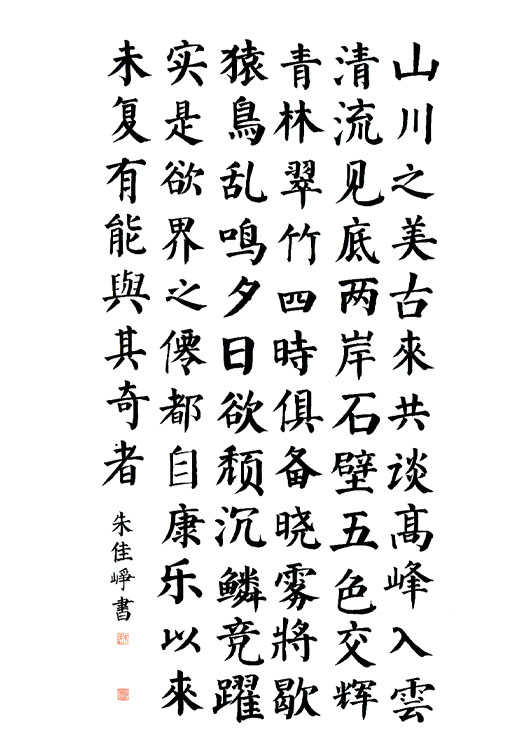 山川之美古來共谈髙峰入雲
清流见底两岸石壁五色交辉
青林翠竹四時俱备晓雾將歇
猿鳥乱鳴夕日欲颓沉鳞竞躍
实是欲界之僊都自康乐以來
未复有能與其奇者
朱佳崢書